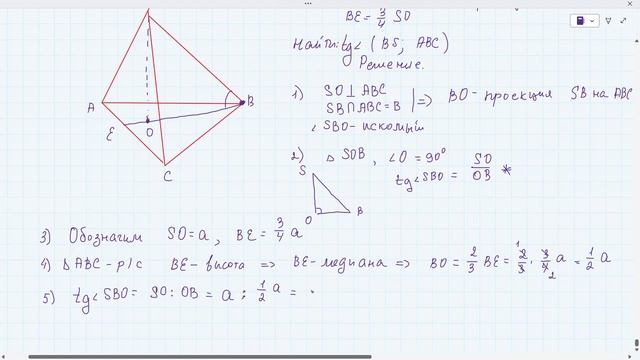 BE = 3/4 SO
Найти: tg∠ (BS; ABC)
Решение.
1) SO ⊥ ABC
SB ∩ ABC = B | => BO - проекция SB на ABC
∠SBO - искомый
2) △ SOB, ∠O = 90°
tg∠SBO = SO/OB *
S
O
B
A
B
E
O
C
3) Обозначим SO = a, BE = 3/4 a
4) △ABC - р/с BE - высота => BE - медиана => BO = 2/3 BE = 2/3 · 3/4 a = 1/2 a
5) tg∠SBO = SO : OB = a : 1/2 a =